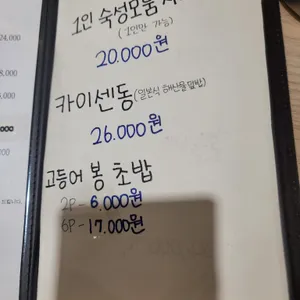 1인 숙성모둠
(1인만 가능)
20.000원
카이센동(일본식 해산물덮밥)
26.000원
고등어 봉 초밥
2P - 6.000원
6P - 17.000원
24,000